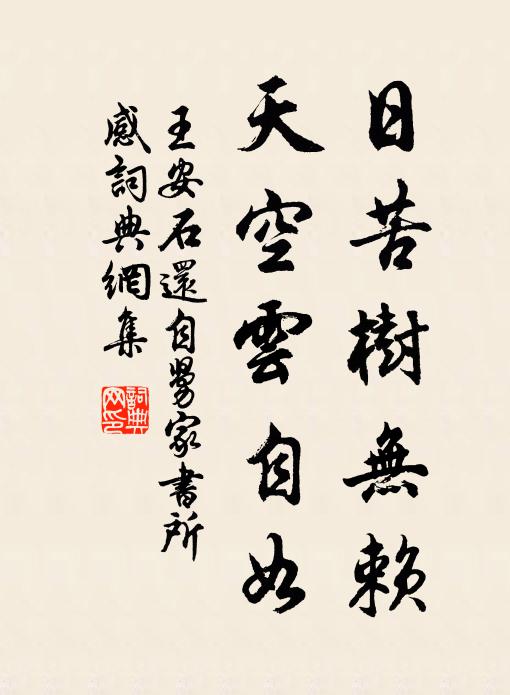 日苦樹無賴
天空雲自如
王安石還自舅家書所
感詞典網集
詞典
网印